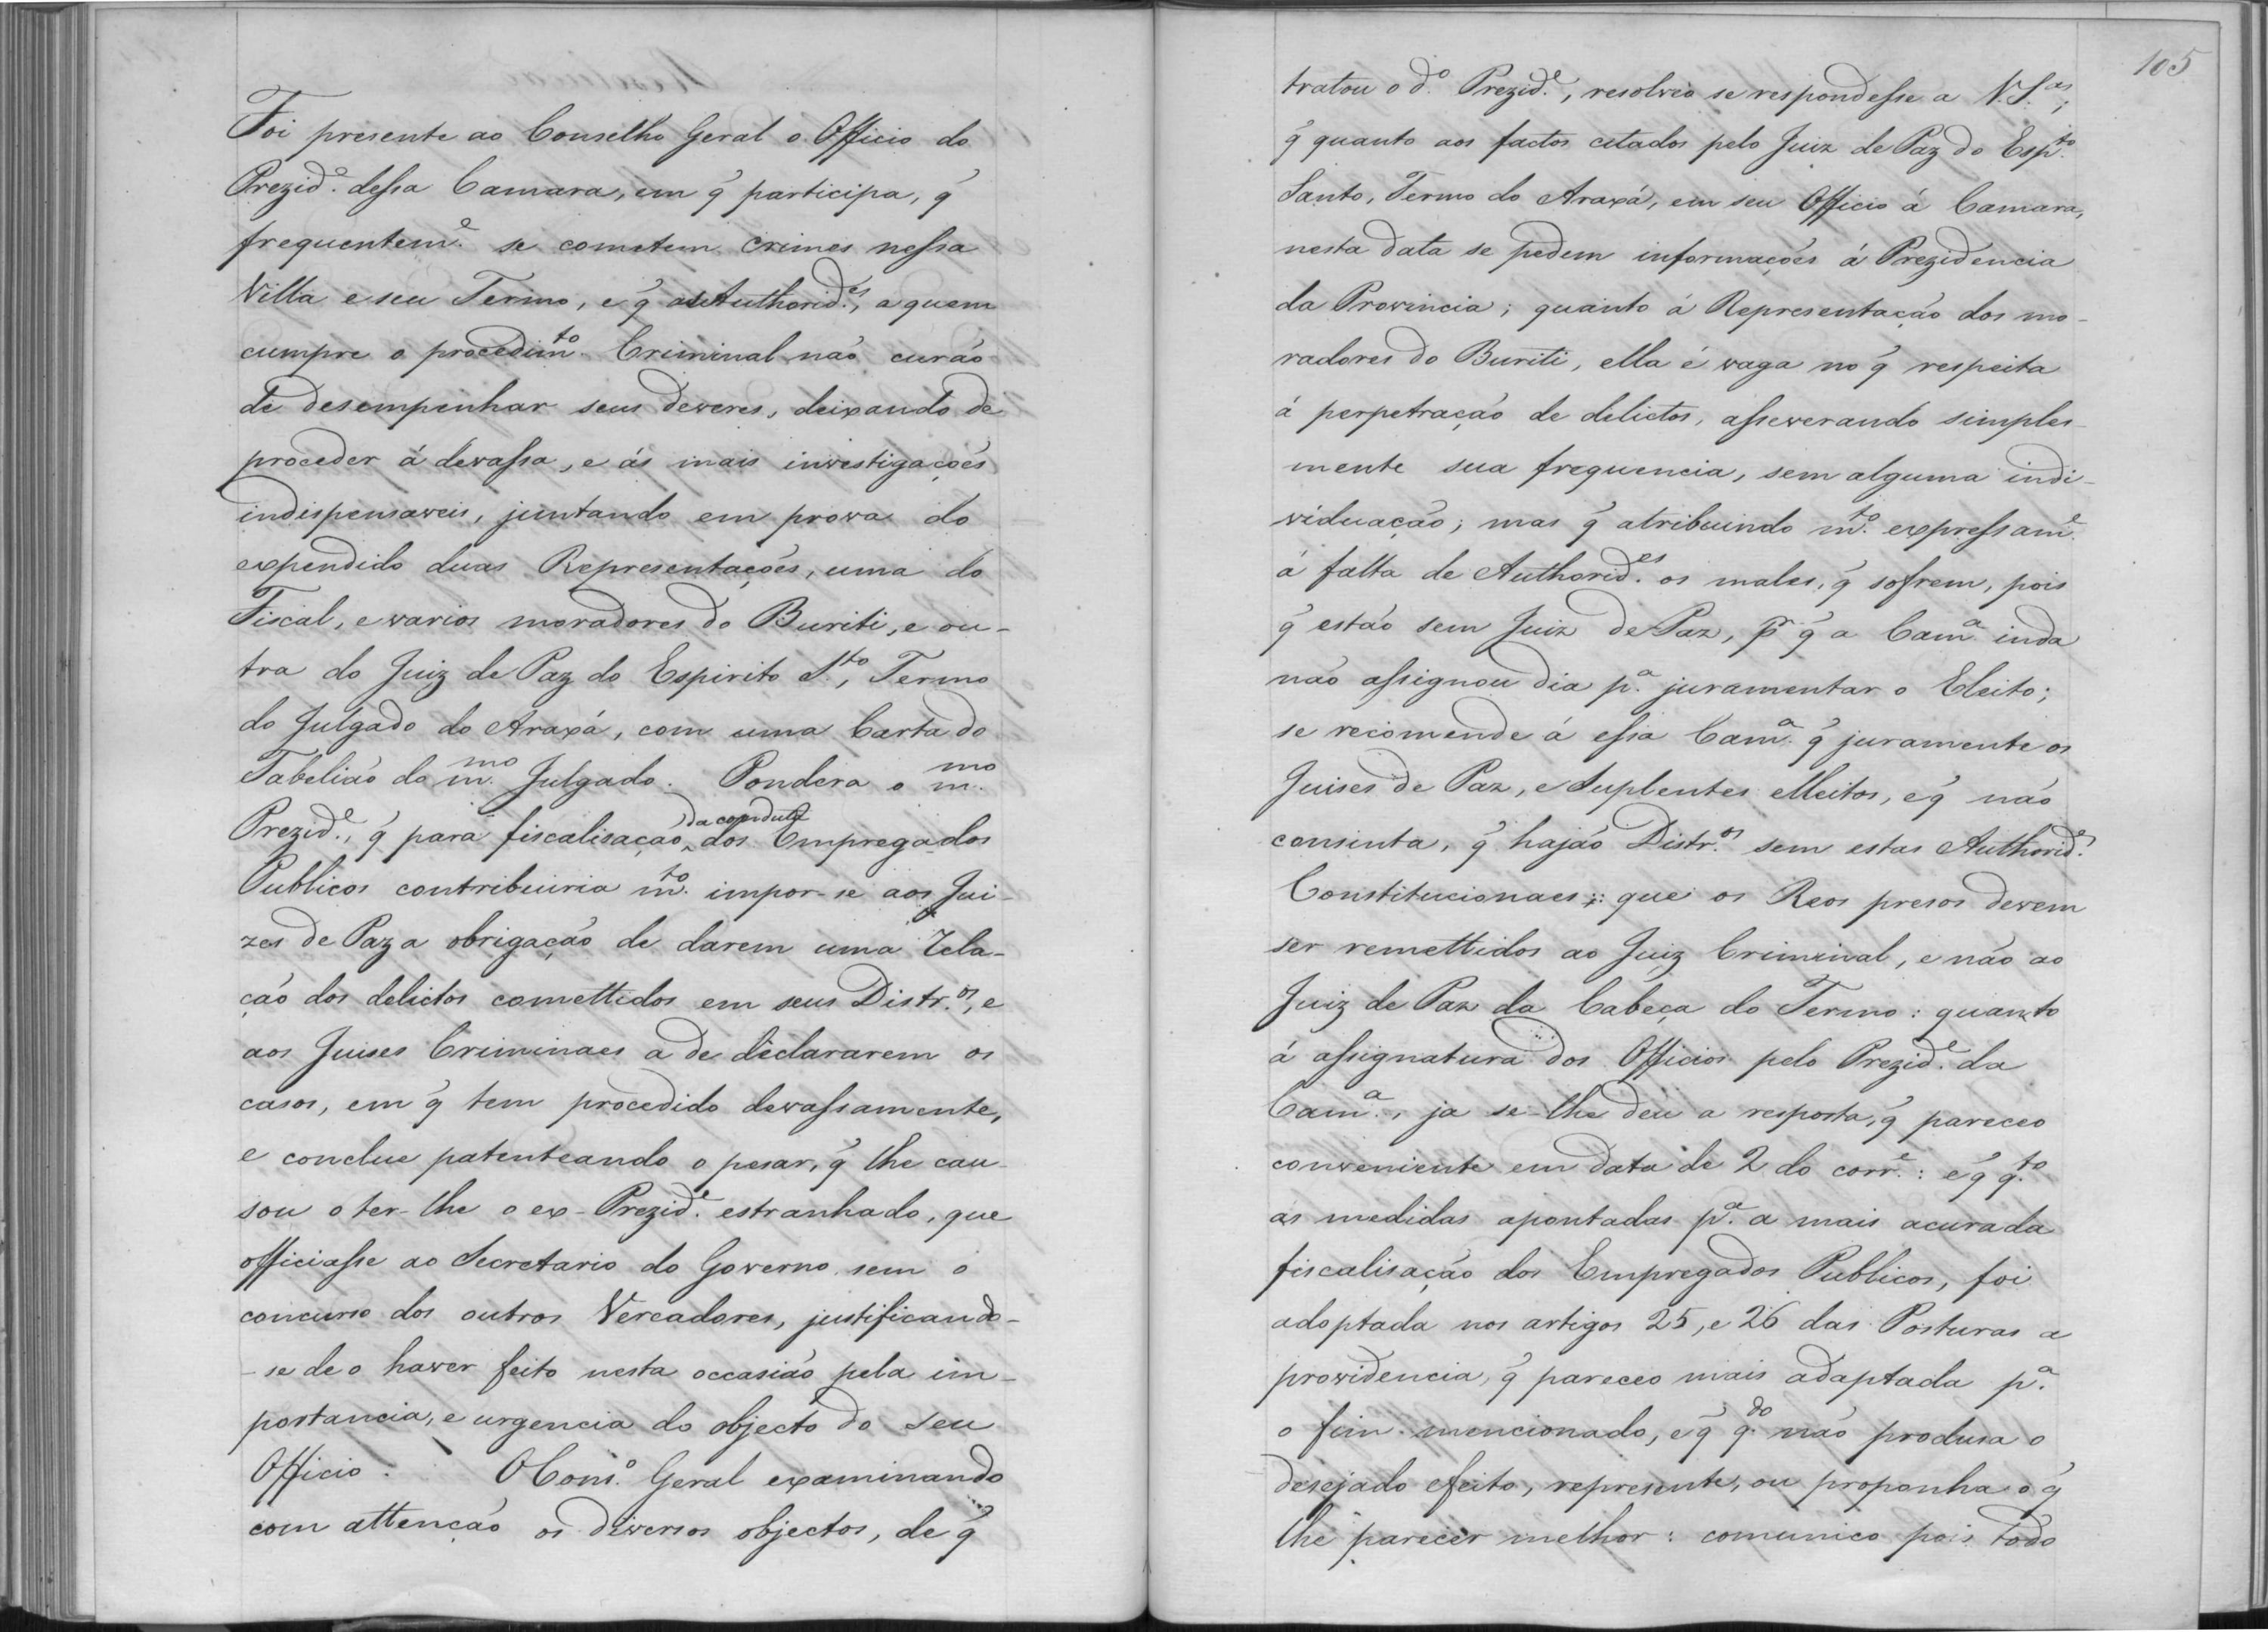 Foi presente ao Conselho Geral o Officio do
Prezid.e dessa Camara, em q̃ participa, q̃
frequentem.e se cometem crimes nessa
Villa e seu Termo, e q̃ as Authorid.es, a quem
cumpre o procedim.to Criminal não curão
de desempenhar seus deveres, deixando de
proceder á devassa, e ás mais investigações
indispensaveis, juntando em prova do
expendido duas Representações, uma do
Fiscal, e varios moradores do Buriti, e ou-
tra do Juiz de Paz do Espirito S.to, Termo
do Julgado do Araxá, com uma Carta do
Tabelião do m.mo Julgado. Pondera o m.mo
Prezid.e, q̃ para fiscalisação da conduta dos Empregados
Publicos contribuiria m.to impor-se aos Jui-
zes de Paz a obrigação de darem uma rela-
ção dos delictos comettidos em seus Distr.os, e
aos Juises Criminaes a de declararem os
casos, em q̃ tem procedido devassamente,
e conclue patenteando o pesar, q̃ lhe cau-
sou o ter-lhe o ex-Prezid.e estranhado, que
officiasse ao Secretario do Governo sem o
concurso dos outros Vereadores, justificando-
-se de o haver feito nesta occasião pela im-
portancia, e urgencia do objecto do seu
Officio. O Cons.o Geral examinando
com attenção os diversos objectos, de q̃
105
tratou o d.o Prezid.e, resolveo se respondesse a V.S.as;
q̃ quanto aos factos citados pelo Juiz de Paz do Esp.to
Santo, Termo do Araxá, em seu Officio á Camara,
nesta data se pedem informações á Prezidencia
da Provincia; quanto á Representação dos mo-
radores do Buriti, ella é vaga no q̃ respeita
á perpetração de delictos, asseverando simples-
mente sua frequencia, sem alguma indi-
viduação; mas q̃ atribuindo m.to expressam.e
á falta de Authorid.es os males, q̃ sofrem, pois
q̃ estão sem Juiz de Paz, pr q̃ a Cam.a inda
não assignou dia p.a juramentar o Eleito;
se recomende á essa Cam.a q̃ juramente os
Juises de Paz, e Suplentes elleitos, e q̃ não
consinta, q̃ hajão Distr.os sem estas Authorid.e
Constitucionaes; que os Reos presos devem
ser remettidos ao Juiz Criminal, e não ao
Juiz de Paz da Cabeça do Termo: quanto
á assignatura dos Officios pelo Prezid.e da
Cam.a, ja se-lhe deu a resposta, q̃ pareceo
conveniente em data de 2 do corr.e: e q̃ q.to
ás medidas apontadas p.a a mais acurada
fiscalisação dos Empregados Publicos, foi
adoptada nos artigos 25, e 26 das Posturas a
providencia, q̃ pareceo mais adaptada p.a
o fim mencionado, e q̃ q.do não produsa o
desejado efeito, represente, ou proponha o q̃
lhe parecer melhor: comunico pois todo